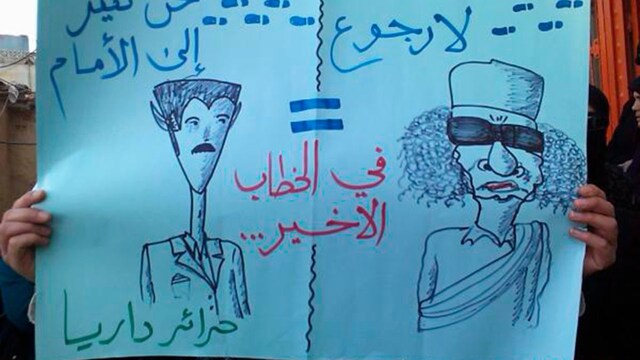 لا رجوع
نحن نسير
إلى الأمام
=
في الخطاب
الاخير...
حرائر داريا